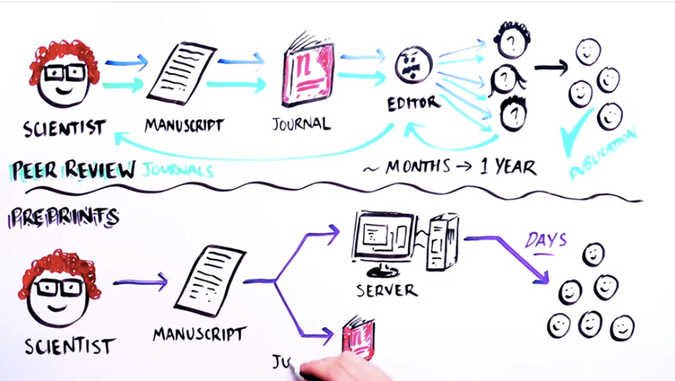 n
?
?
?
SCIENTIST
MANUSCRIPT
JOURNAL
EDITOR
PUBLICATION
PEER REVIEW JOURNALS
~ MONTHS → 1 YEAR
PREPRINTS
DAYS
SERVER
SCIENTIST
MANUSCRIPT
n